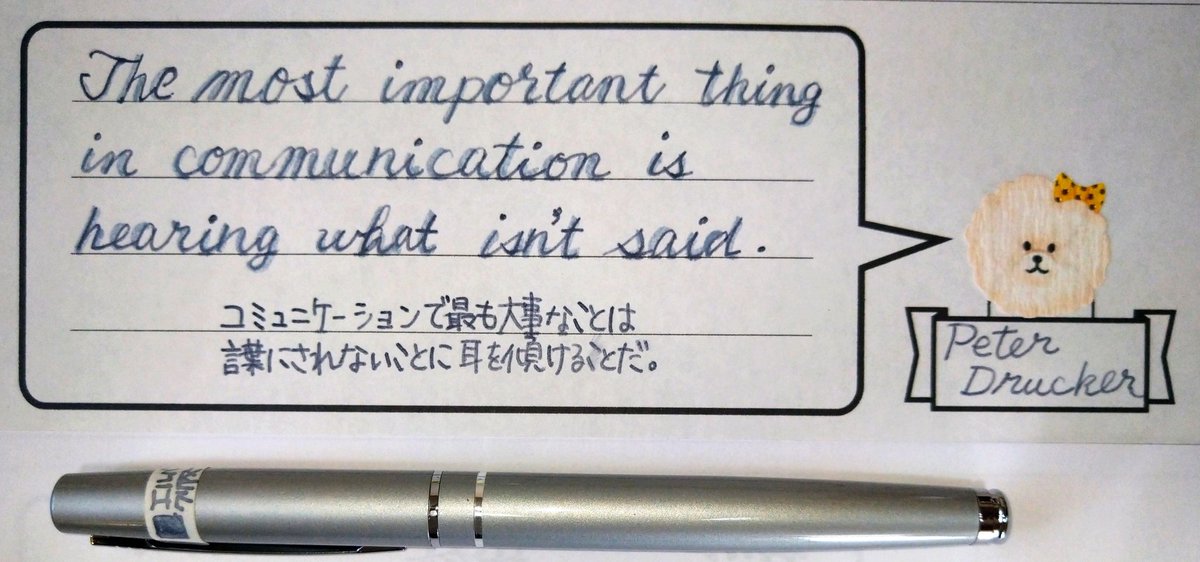 The most important thing
in communication is
hearing what isn't said.
コミュニケーションで最も大事なことは
言葉にされないことに耳を傾けることだ。
Peter
Drucker